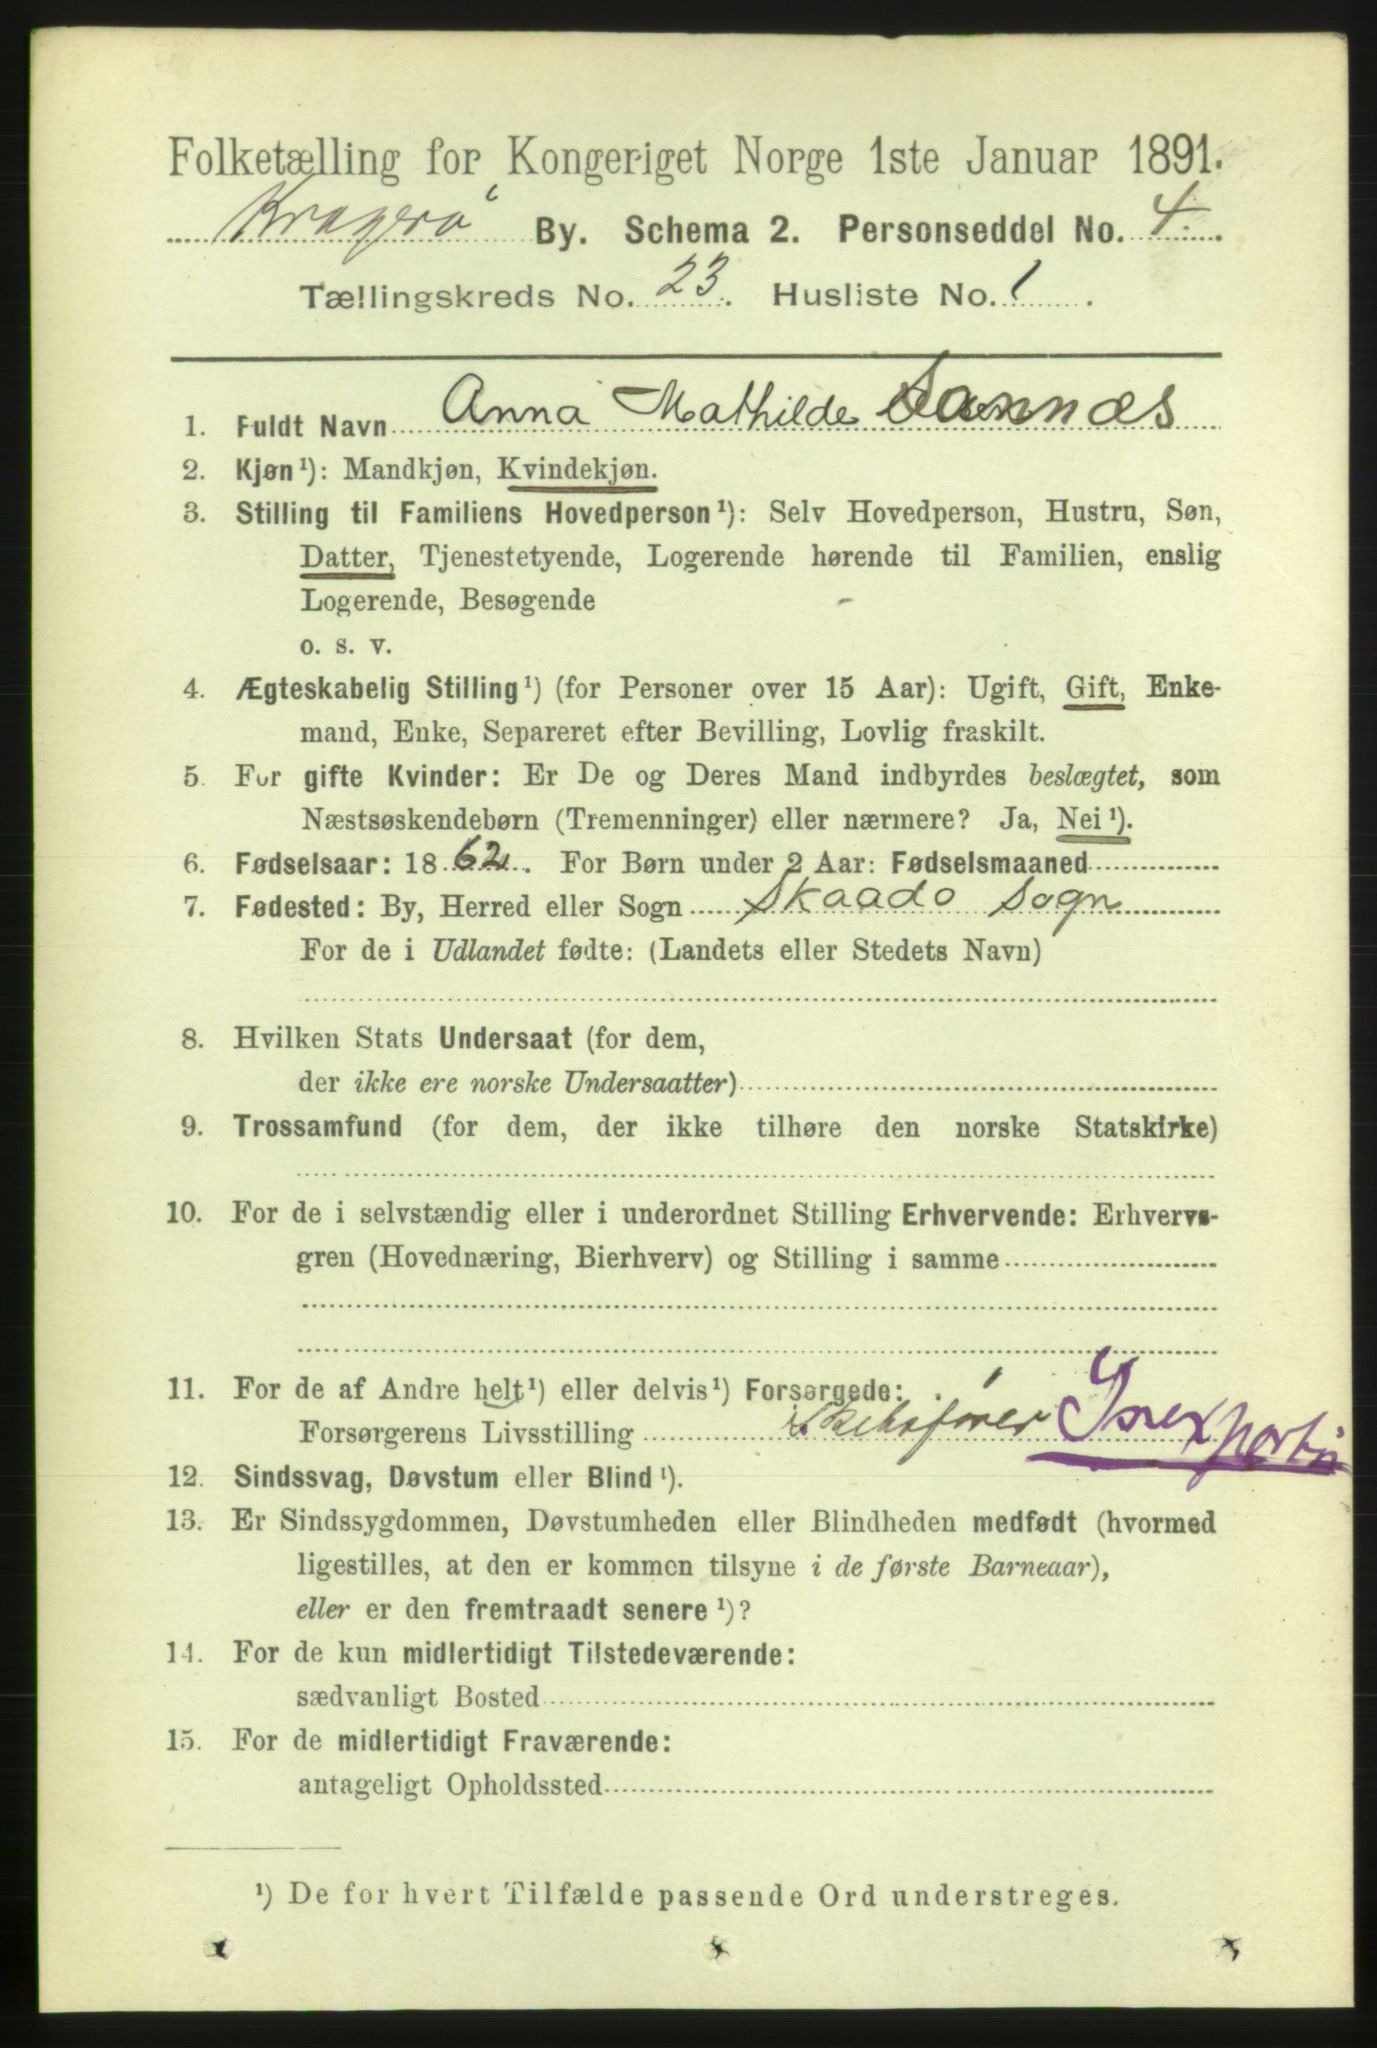 Folketælling for Kongeriget Norge 1ste Januar 1891.
Kragerø By. Schema 2. Personseddel No. 4.
Tællingskreds No. 23. Husliste No. 1.
1. Fuldt Navn Anna Mathilde Sannæs
2. Kjøn¹): Mandkjøn, Kvindekjøn.
3. Stilling til Familiens Hovedperson¹): Selv Hovedperson, Hustru, Søn,
Datter, Tjenestetyende, Logerende hørende til Familien, enslig
Logerende, Besøgende
o. s. v.
4. Ægteskabelig Stilling¹) (for Personer over 15 Aar): Ugift, Gift, Enke-
mand, Enke, Separeret efter Bevilling, Lovlig fraskilt.
5. For gifte Kvinder: Er De og Deres Mand indbyrdes beslægtet, som
Næstsøskendebørn (Tremenninger) eller nærmere? Ja, Nei¹).
6. Fødselsaar: 1862. For Børn under 2 Aar: Fødselsmaaned
7. Fødested: By, Herred eller Sogn Skaado Sogn
For de i Udlandet fødte: (Landets eller Stedets Navn)
8. Hvilken Stats Undersaat (for dem,
der ikke ere norske Undersaatter)
9. Trossamfund (for dem, der ikke tilhøre den norske Statskirke)
10. For de i selvstændig eller i underordnet Stilling Erhvervende: Erhvervs-
gren (Hovednæring, Bierhverv) og Stilling i samme
11. For de af Andre helt¹) eller delvis¹) Forsørgede:
Forsørgerens Livsstilling Skibsfører
12. Sindssvag, Døvstum eller Blind¹).
13. Er Sindssygdommen, Døvstumheden eller Blindheden medfødt (hvormed
ligestilles, at den er kommen tilsyne i de første Barneaar),
eller er den fremtraadt senere¹)?
14. For de kun midlertidigt Tilstedeværende:
sædvanligt Bosted
15. For de midlertidigt Fraværende:
antageligt Opholdssted
¹) De for hvert Tilfælde passende Ord understreges.